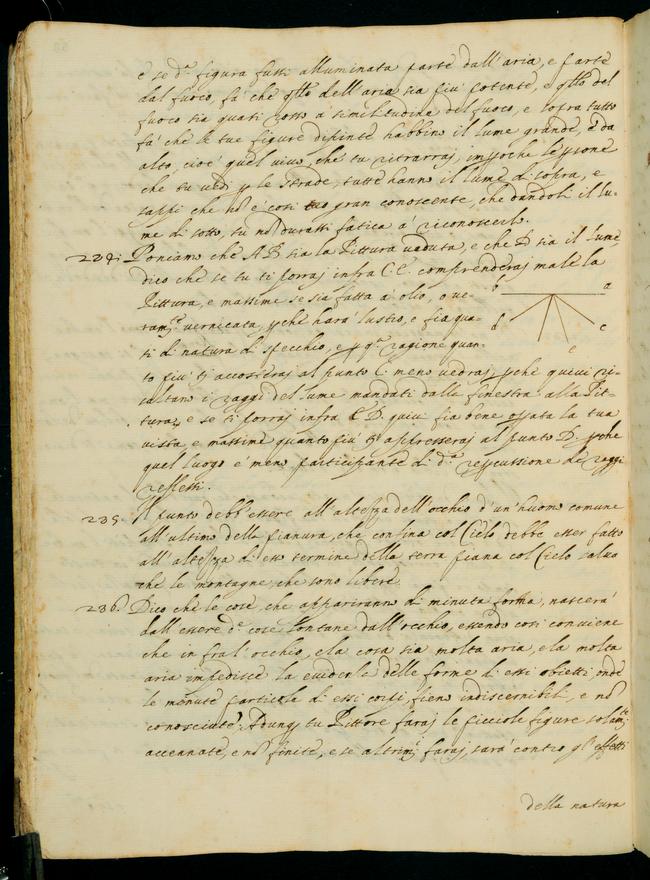 e se d.ª figura fussi alluminata parte dall'aria, e parte
dal fuoco, fa' che qllo dell'aria sia piu' potente, e qllo del
fuoco sia quasi rosso a similitudine del fuoco, e sopra tutto
fa' che le tue figure dipinte habbino il lume grande, e da
alto, cioe' quel vivo, che tu ritrarraj, impoche le psone
che tu vedi p le strade, tutte hanno il lume di sopra, e
sappi che nō e' cosi gran conoscente, che dandoli il lu-
me di sotto, tu nō durassi fatica a' riconoscerlo.
234: Poniamo che A B sia la Pittura veduta, e che D sia il lume
dico che se tu ti porraj infra C E. comprenderaj male la
Pittura, e massime se sia fatta a' olio, o ve-
ram.e vernicata, pche hara' lustro, e fia qua-
si di natura di specchio, e p q.ª ragione quan-
to piu' ti accosteraj al punto C. meno vedraj, pche quivi ri-
sultano i raggi del lume mandati dalla finestra alla Pit-
tura, e se ti porraj infra E D. quivi fia bene opata la tua
vista, e massime quanto piu' ti appresseraj al punto D. pche
quel luogo e' meno participante di d.ª repcussione de raggi
reflessi.
b a
d c
e
235. Il punto debb'essere all'altezza dell'occhio d'un'huomo comune
all'ultimo della pianura, che confina col Cielo debbe esser fatto
all'altezza di esso termine della terra piana col Cielo salvo
che le montagne, che sono libere.
236. Dico che le cose, che appariranno di minuta forma, nascera'
dall'essere d.e cose lontane dall'occhio, essendo cosi conviene
che in fra l'occhio, e la cosa sia molta aria, e la molta
aria impedisce la evidentia delle forme di essi obietti, onde
le minute particule di essi corpi, fieno indiscernibili, e nō
conosciute. Adunq tu Pittore faraj le picciole figure solam.te
accennate, e nō finite, e se altrim.i faraj, sara' contro gl'effetti
della natura